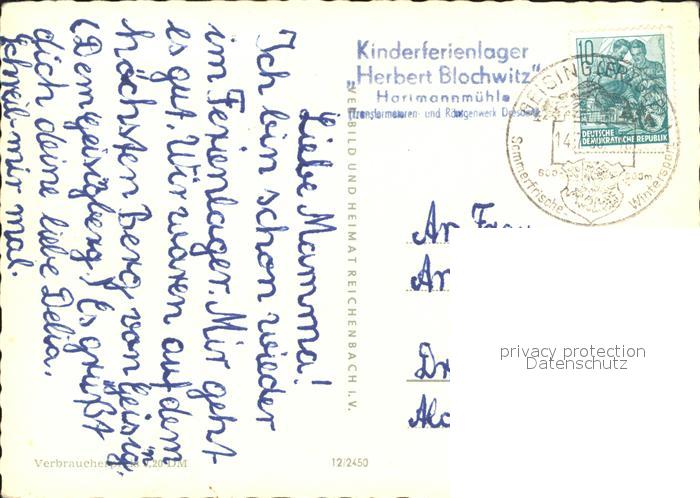 Liebe Mamma!
Ich bin schon wieder
im Ferienlager. Mir geht
es gut. Wir waren auf dem
höchsten Berg von Geising,
(Dem Geisigberg.) Es grüßt
dich deine liebe Delia.
Schreib mir mal.
Kinderferienlager
„Herbert Blochwitz"
Hartmannmühle
(Transformatoren- und Röntgenwerk Dresden)
10
DEUTSCHE
DEMOKRATISCHE REPUBLIK
GEISING (ERZGEB)
14.
600-800m
Sommerfrische - Wintersport
BILD UND HEIMAT REICHENBACH I. V.
An Frau
Dr
privacy protection
Datenschutz
Verbraucherpreis 0,20 DM
12/2450